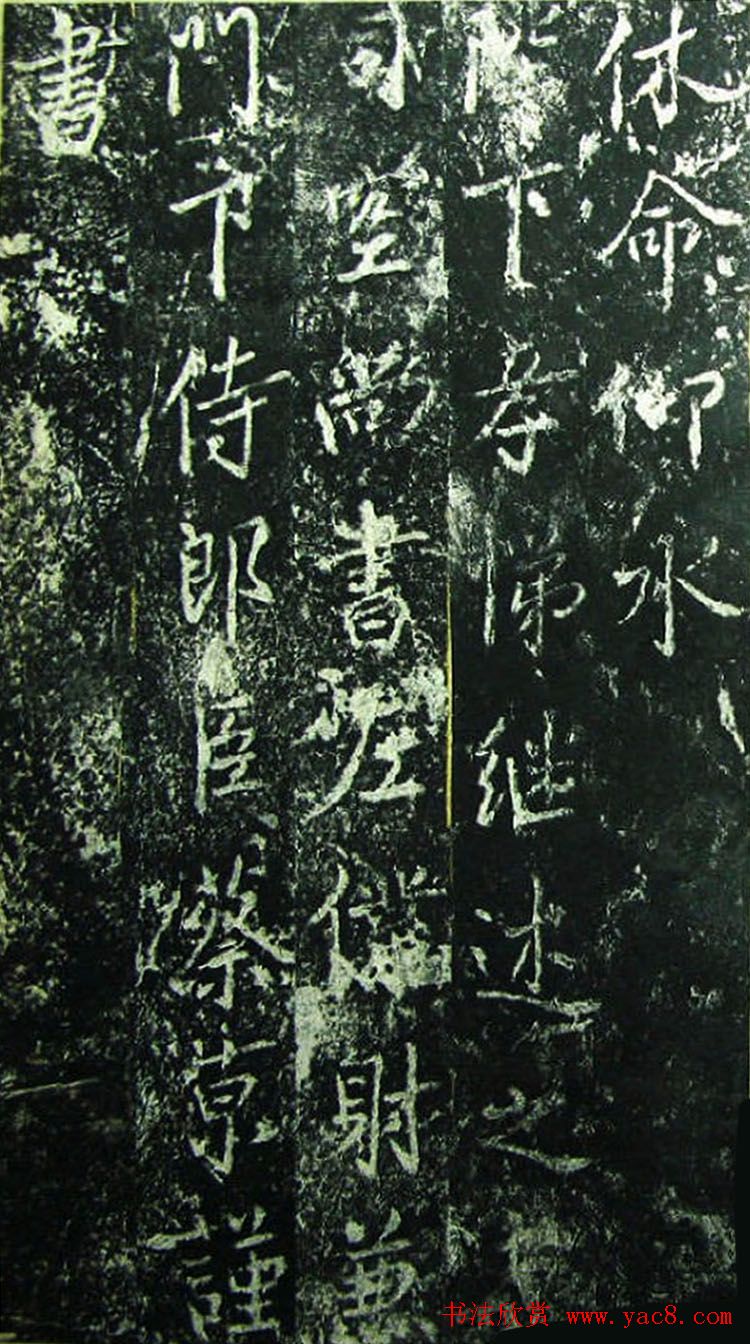 休命仰承
陛下孝悌継述之
司空尚書左僕射兼
門下侍郎臣蔡京謹
書
书法欣赏 www.yac8.com